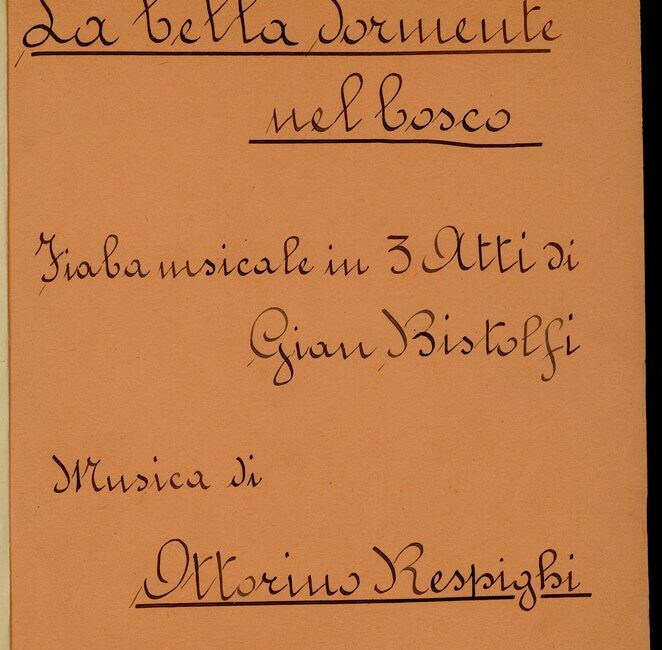 La bella dormente
nel bosco
Fiaba musicale in 3 Atti di
Gian Bistolfi
Musica di
Ottorino Respighi